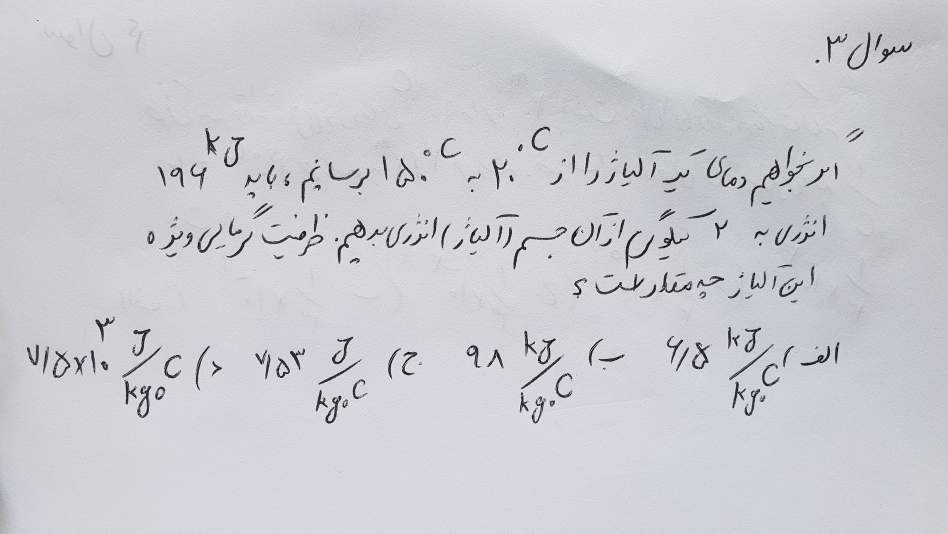 سوال ۳.
اگر بخواهیم دمای یک آلیاژ را از ۲۰°C به ۱۵۰°C برسانیم، باید ۱۹۶ kJ
انرژی به ۲ کیلوگرم از آن جسم (آلیاژ) انرژی بدهیم. ظرفیت گرمایی ویژه
این آلیاژ چه مقدار است؟
الف) ۶/۵ kJ/kg.°C ب) ۹۸ kJ/kg.°C ج) ۷/۵۳ J/kg.°C د) ۷/۵×۱۰^۳ J/kg°C